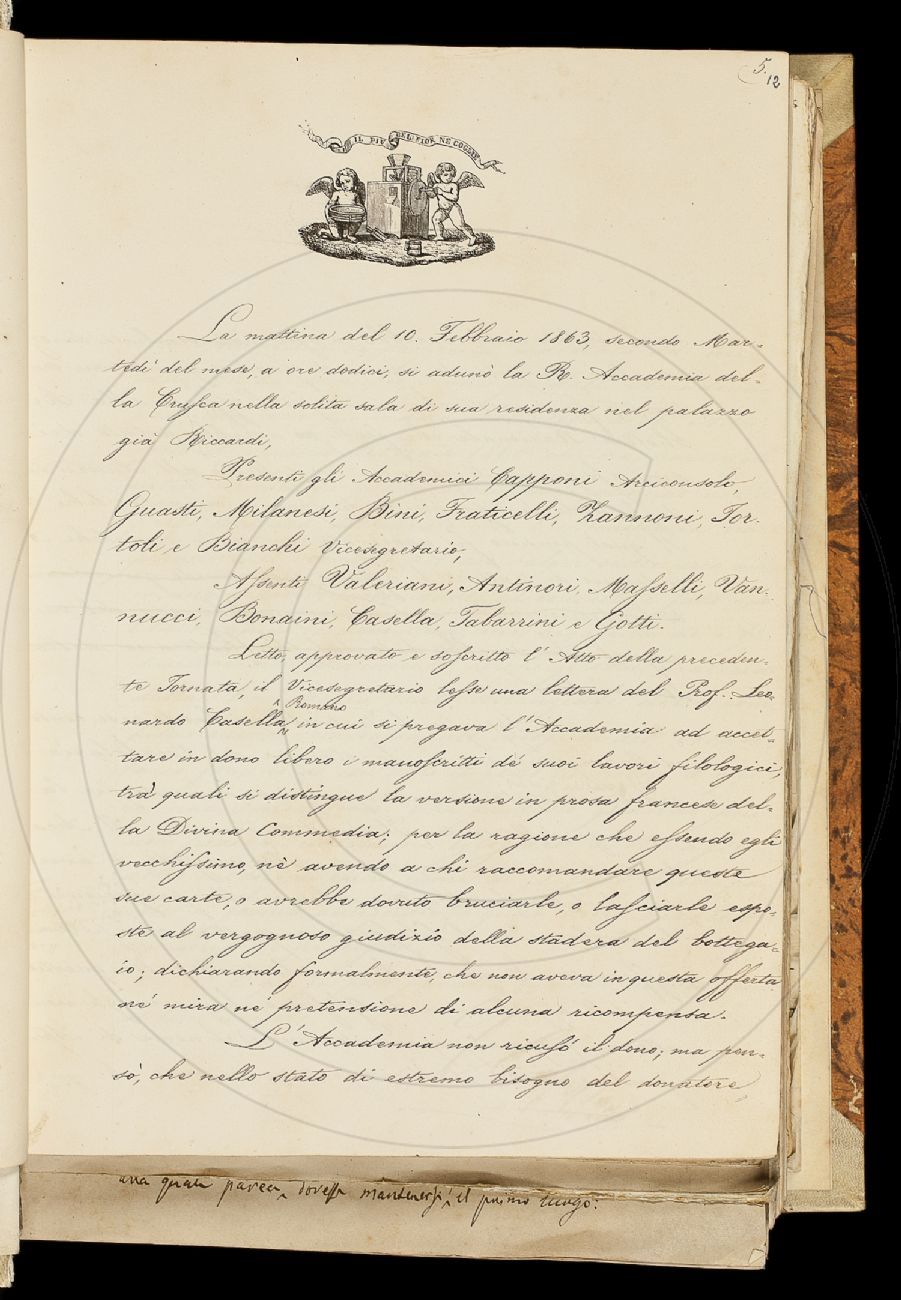 5.
12
IL PIÙ BEL FIOR NE COGLIE
La mattina del 10. Febbraio 1863, secondo Mar-
tedì del mese, a ore dodici, si adunò la R. Accademia del-
la Crusca nella solita sala di sua residenza nel palazzo
già Riccardi,
Presenti gli Accademici Capponi Arciconsolo,
Guasti, Milanesi, Bini, Fraticelli, Zannoni, Tor-
toli e Bianchi Vicesegretario;
Assenti Valeriani, Antinori, Masselli, Van-
nucci, Bonaini, Casella, Tabarrini e Gotti.
Letto, approvato e soscritto l'Atto della preceden-
te Tornata, il Vicesegretario lesse una lettera del Prof. Leo-
Romano
nardo Casella, in cui si pregava l'Accademia ad accet-
tare in dono libero i manoscritti de' suoi lavori filologici,
trà quali si distingue la versione in prosa francese del-
la Divina Commedia; per la ragione che essendo egli
vecchissimo, nè avendo a chi raccomandare queste
sue carte, o avrebbe dovuto bruciarle, o lasciarle espo-
ste al vergognoso giudizio della stadera del bottega-
io; dichiarando formalmente, che non aveva in questa offerta
nè mira nè pretensione di alcuna ricompensa.
L'Accademia non ricusò il dono; ma pen-
sò, che nello stato di estremo bisogno del donatore,
una quale parea, dovesse mantenersi il primo luogo: